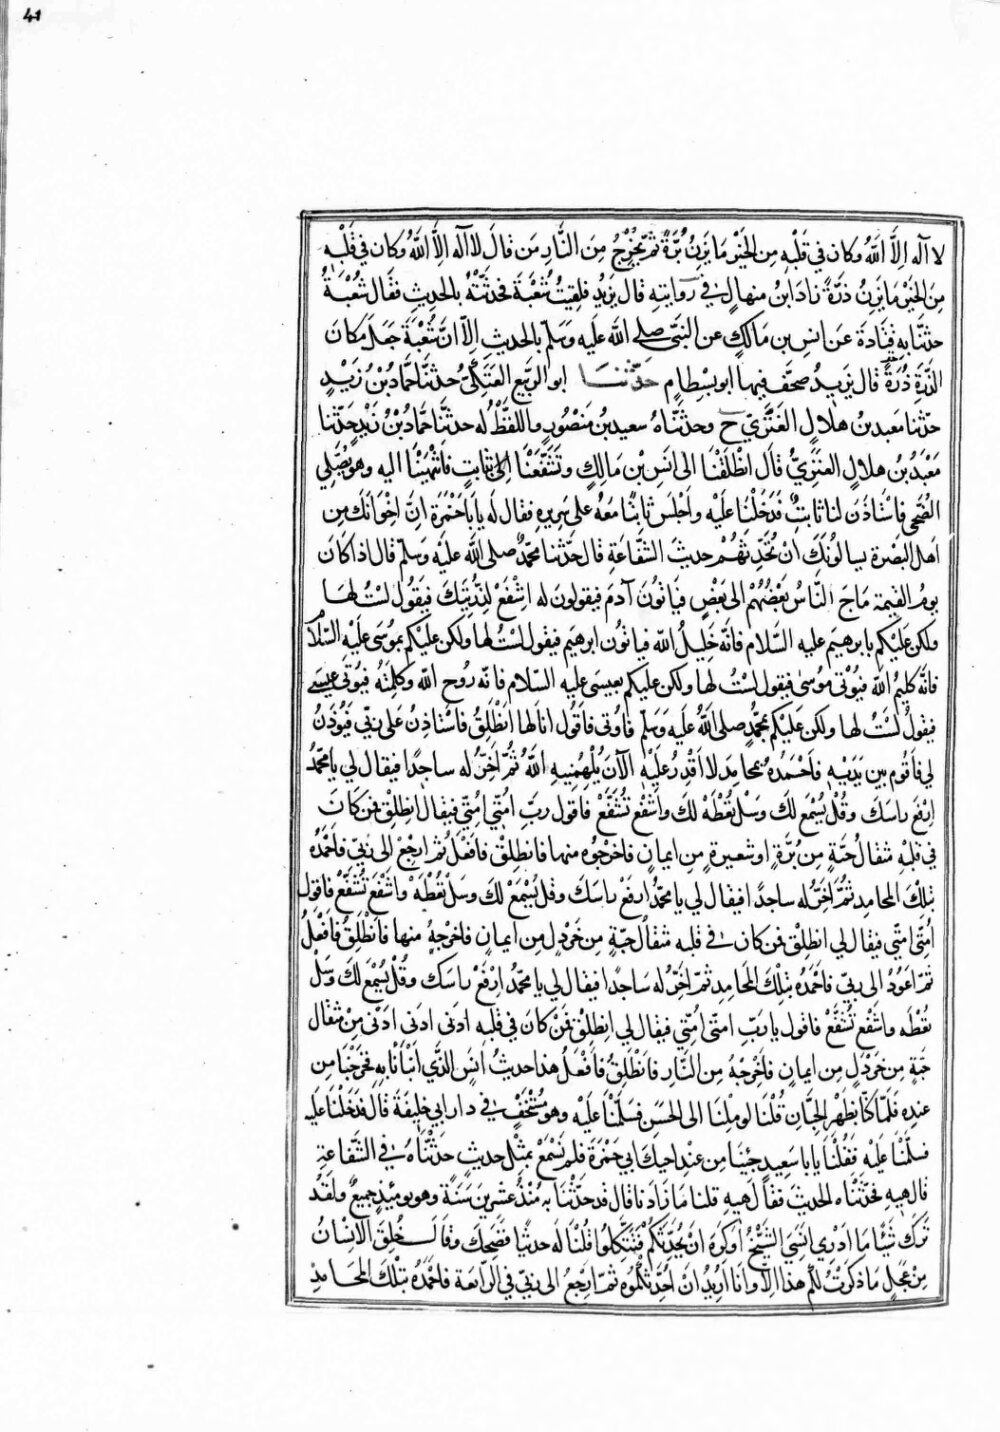 41
لا اله الا الله وكان في قلبه من الخير ما يزن برة ثم يخرج من النار من قال لا اله الا الله وكان في قلبه
من الخير ما يزن ذرة زاد ابن منهال في روايته قال يزيد فلقيت شعبة فحدثته بالحديث فقال شعبة
حدثنا به قتادة عن انس بن مالك عن النبي صلى الله عليه وسلم بالحديث الا ان شعبة جعل مكان
الذرة ذرة قال يزيد صحف فيها ابو بسطام حدثنا ابو الربيع العتكي حدثنا حماد بن زيد
حدثنا معبد بن هلال العنزي ح وحدثناه سعيد بن منصور واللفظ له حدثنا حماد بن زيد حدثنا
معبد بن هلال العنزي قال انطلقنا الى انس بن مالك وتشفعنا الى ثابت فانتهينا اليه وهو يصلي
الضحى فاستاذن لنا ثابت فدخلنا عليه واجلس ثابتا معه على سريره فقال له يا با حمزة ان اخوانك من
اهل البصرة يسالونك ان تحدثهم حديث الشفاعة قال حدثنا محمد صلى الله عليه وسلم قال اذا كان
يوم القيمة ماج الناس بعضهم الى بعض فياتون آدم فيقولون له اشفع لذريتك فيقول لست لها
ولكن عليكم بابرهيم عليه السلام فانه خليل الله فياتون ابرهيم فيقول لست لها ولكن عليكم بموسى عليه السلام
فانه كليم الله فيوتى موسى فيقول لست لها ولكن عليكم بعيسى عليه السلام فانه روح الله وكلمته فيوتى عيسى
فيقول لست لها ولكن عليكم بمحمد صلى الله عليه وسلم فاوتى فاقول انا لها انطلق فاستاذن على ربي فيوذن
لي فاقوم بين يديه فاحمده بمحامد لا اقدر عليه الآن يلهمنيه الله ثم اخر له ساجدا فيقال لي يا محمد
ارفع راسك وقل يسمع لك وسل تعطه لك واشفع تشفع فاقول رب امتي امتي فيقال انطلق فمن كان
في قلبه مثقال حبة من برة او شعيرة من ايمان فاخرجوه منها فانطلق فافعل ثم ارجع الى ربي فاحمده
بتلك المحامد ثم اخر له ساجدا فيقال لي يا محمد ارفع راسك وقل يسمع لك وسل تعطه واشفع تشفع فاقول
امتي امتي فيقال لي انطلق فمن كان في قلبه مثقال حبة من خردل من ايمان فاخرجه منها فانطلق فافعل
ثم اعود الى ربي فاحمده بتلك المحامد ثم اخر له ساجدا فيقال لي يا محمد ارفع راسك وقل يسمع لك وسل
تعطه واشفع تشفع فاقول يا رب امتي امتي فيقال لي انطلق فمن كان في قلبه ادنى ادنى ادنى من مثقال
حبة من خردل من ايمان فاخرجه من النار فانطلق فافعل هذا حديث انس الذي انبانا به فخرجنا من
عنده فلما كنا بظهر الجبان قلنا لو ملنا الى الحسن فسلمنا عليه وهو مستخف في دار ابي خليفة قال فدخلنا عليه
فسلمنا عليه فقلنا يا با سعيد جينا من عند اخيك ابي حمزة فلم نسمع بمثل حديث حدثناه في الشفاعة
قال هيه فحدثناه الحديث فقال هيه قلنا ما زادنا قال قد حدثنا به منذ عشرين سنة وهو يومئذ جميع ولقد
ترك شيئا ما ادري انسي الشيخ او كره ان يحدثكم فتتكلوا قلنا له حدثنا فضحك وقال خلق الانسان
من عجل ما ذكرت لكم هذا الا وانا اريد ان احدثكموه ثم ارجع الى ربي في الرابعة فاحمده بتلك المحامد